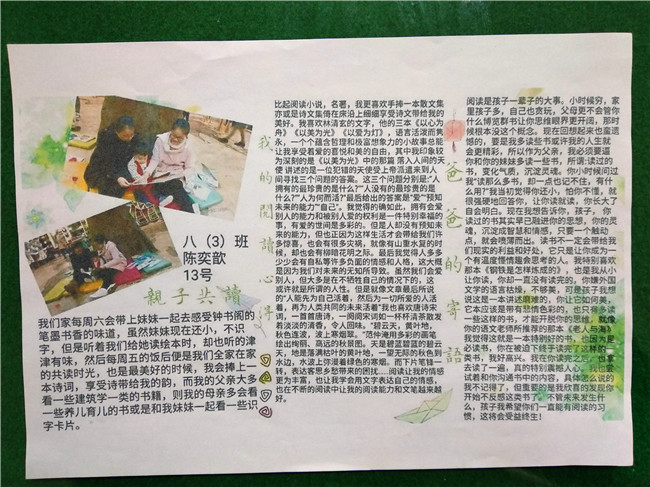 八（3）班
陈奕歆
13号
親子共讀
我们家每周六会带上妹妹一起去感受钟书阁的
笔墨书香的味道，虽然妹妹现在还小，不识
字，但是听着我们给她读绘本时，却也听的津
津有味，然后每周五的饭后便是我们全家在家
的共读时光，也是最美好的时候，我会捧上一
本诗词，享受诗带给我的韵，而我的父亲大多
看一些建筑学一类的书籍，则我的母亲多会看
一些养儿育儿的书或是和我妹妹一起看一些识
字卡片。
我的閱讀心得
比起阅读小说，名著，我更喜欢手捧一本散文集
亦或是诗文集倚在床沿上细细享受诗文带给我的
美好。我喜欢林清玄的文字，他的三本《以心为
舟》《以美为光》《以爱为灯》，语言活泼而隽
永，一个个蕴含哲理和极富想象力的小故事总能
让我享受着爱的喜悦和美的自由，其中我印象较
为深刻的是《以美为光》中的那篇 落入人间的天
使 讲述的是一位犯错的天使受上帝派遣来到人
间寻找三个问题的答案。这三个问题分别是:“人
拥有的最珍贵的是什么?”“人没有的最珍贵的是
什么?”“人为何而活?”最后给出的答案是“爱”“预知
未来的能力”“自己”。我觉得的确如此，拥有会爱
别人的能力和被别人爱的权利是一件特别幸福的
事，有爱的世间是多彩的。但是人却没有预知未
来的能力，但也正因为这样生活才会带给我们许
多惊喜，也会有很多灾祸，就像有山重水复的时
候，却也会有柳暗花明之际。最后我觉得人多多
少少会有自私等许多负面的情感和人格，这大概
是因为我们对未来的无知所导致。虽然我们会爱
别人，但大多是在不牺牲自己的情况下的，这
或许就是所谓的人性。但是就像文章最后所说
的“人能先为自己活着，然后为一切所爱的人活
着，再为人类共同的未来活着”我也喜欢唐诗宋
词，一首首唐诗，一阕阕宋词如一杯杯清茶散发
着淡淡的清香，令人回味。“碧云天，黄叶地，
秋色连波，波上寒烟翠。”范仲淹用多彩的画笔
绘出绚丽、高远的秋景图。天是碧蓝碧蓝的碧云
天，地是落满枯叶的黄叶地，一望无际的秋色到
水边，水波上弥漫着绿色的寒烟。而下片笔锋一
转，表达客思乡愁带来的困扰...阅读让我的情感
更为丰富，也让我学会用文字表达自己的情感，
也在不断的阅读中让我的阅读能力和文笔越来越
好。
爸爸的寄語
阅读是孩子一辈子的大事。小时候穷，家
里孩子多，自己也贪玩，父母更不会管你
什么博览群书让你思维眼界更开阔，那时
候根本没这个概念。现在回想起来也蛮遗
憾的，要是我多读些书或许我的人生就
会更精彩，所以作为父亲，我必须要逼
你和你的妹妹多读一些书，所谓:读过的
书，变化气质，沉淀灵魂。你小时候问过
我“读那么多书，却一点也记不住，有什
么用?”我当初觉得你还小，怕你不懂，就
很强硬地回答你，让你读就读，你长大了
自会明白。现在我想告诉你，孩子， 你
读过的书其实早已融进你的思想，你的灵
魂，沉淀成智慧和情感，只要一个触动
点，就会喷薄而出。读书不一定会带给我
们现实的利益和好处，它只是让你成为一
个有温度懂情趣会思考的人。我特别喜欢
那本《钢铁是怎样炼成的》，也是我从小
让你读，你却一直没有读完的，你嫌外国
文学的语言枯燥，不够美，可是孩子我想
说这是一本讲述磨难的，你让它如何美，
它本应该是带有悲情色彩的，也只有多读
一些这样的书，才能开脱你的思维，就像
你的语文老师所推荐的那本《老人与海》
我觉得这就是一本特别好的书，也因为是
必读书，你在被迫下终于读完了这样的一
类书，我好高兴。我在你读完之后，也拿
去读了一遍，真的特别震撼人心，我也爱
试着和你沟通书中的内容，具体怎么说的
我不记得了，但重要的是我欣喜的发现你
开始不反感这类书了。不管未来发生什
么，孩子我希望你们一直能有阅读的习
惯，这将会受益终生！